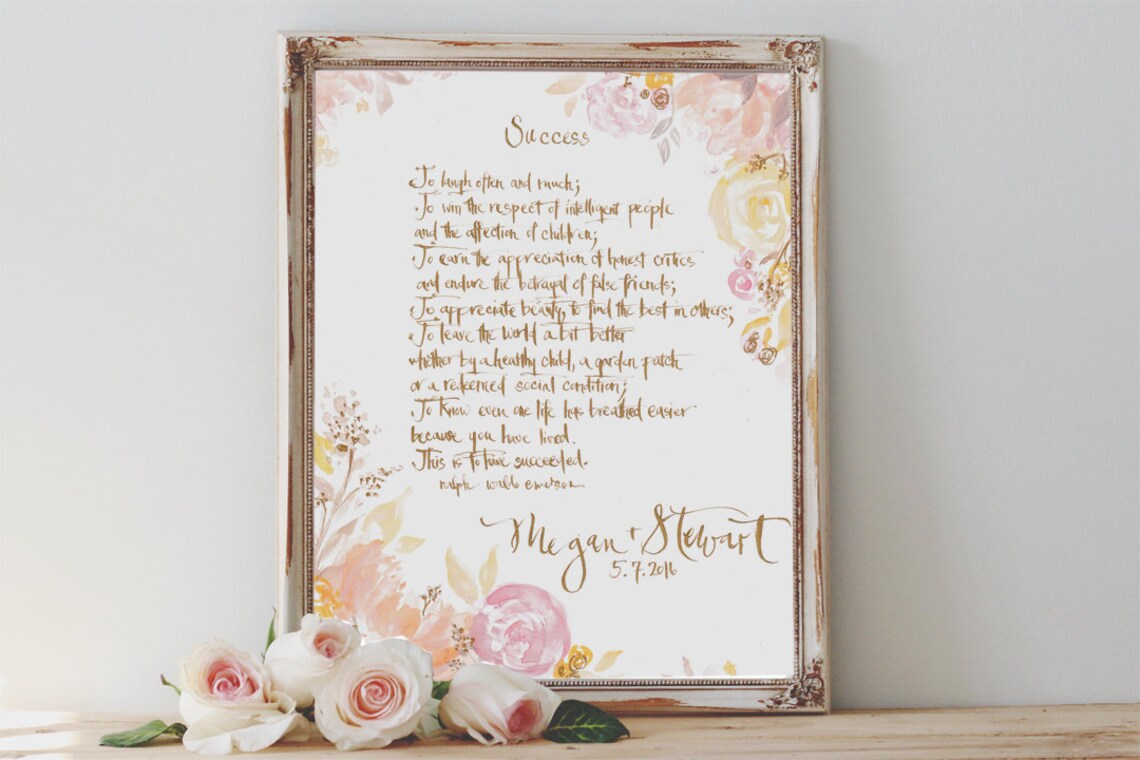 Success
To laugh often and much;
To win the respect of intelligent people
and the affection of children;
To earn the appreciation of honest critics
and endure the betrayal of false friends;
To appreciate beauty, to find the best in others;
To leave the world a bit better
whether by a healthy child, a garden patch
or a redeemed social condition;
To know even one life has breathed easier
because you have lived.
This is to have succeeded.
ralph waldo emerson
Megan + Stewart
5.7.2016